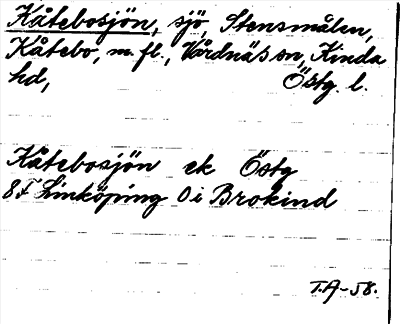 Kåtebosjön, sjö, Stensmålen,
Kåtebo, m. fl., Vårdnäs sn, Kinda
hd, Östg. l.
Kåtebosjön ek Östg
8F Linköping Ö i Brokind
T.A-58.